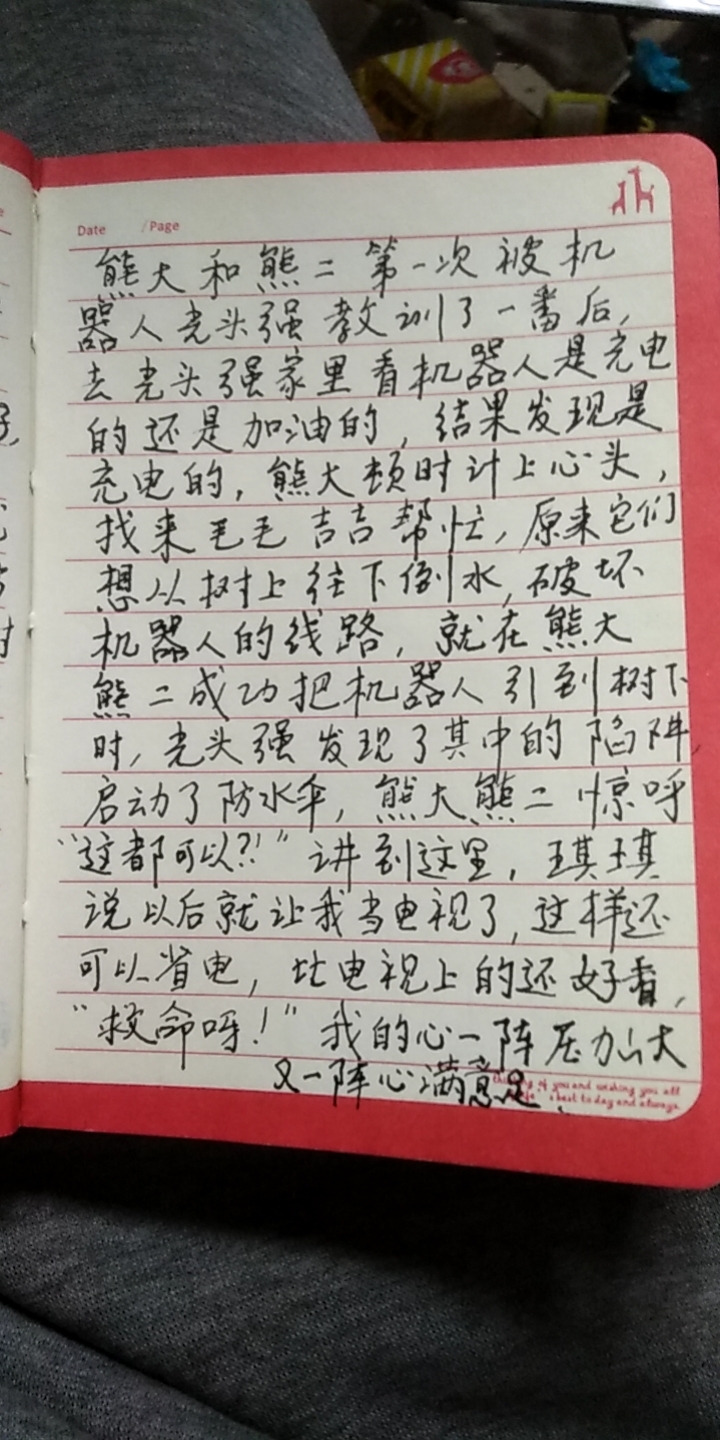 Date /Page
熊大和熊二第一次被机
器人光头强教训了一番后,
去光头强家里看机器人是充电
的还是加油的,结果发现是
充电的,熊大顿时计上心头,
找来毛毛吉吉帮忙,原来它们
想从树上往下倒水,破坏
机器人的线路,就在熊大
熊二成功把机器人引到树下
时,光头强发现了其中的陷阱,
启动了防水伞,熊大熊二惊呼
“这都可以?!”讲到这里,琪琪
说以后就让我当电视了,这样还
可以省电,比电视上的还好看,
“救命呀!”我的心一阵压力山大
又一阵心满意足.
of you and wishing you all
best to day and always